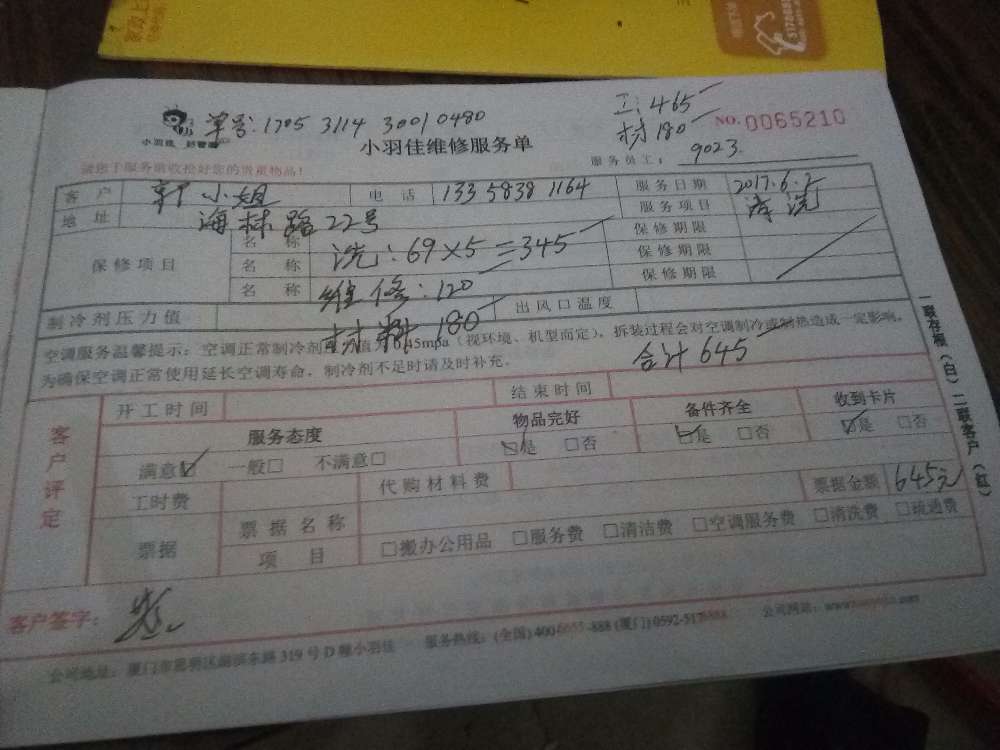 单号: 1705 3114 30010480
工: 465
材 180
NO. 0065210
小羽佳 好管家
小羽佳维修服务单
服务员工: 9023
请您于服务前收拾好您的贵重物品!
客 户 小姐 电 话 133 5838 1164 服务日期 2017.6.2
地 址 海林路22号 服务项目 清洗
保修项目
名 称 洗: 69×5=345 保修期限
名 称 维修: 120 保修期限
名 称 材料 180 保修期限
制冷剂压力值 出风口温度
空调服务温馨提示: 空调正常制冷剂压力值为0.45mpa(视环境、机型而定), 拆装过程会对空调制冷或制热造成一定影响。
为确保空调正常使用延长空调寿命, 制冷剂不足时请及时补充。
合计 645
客户评定
开工时间 结束时间
服务态度 物品完好 备件齐全 收到卡片
满意☑ 一般□ 不满意□ ☑是 □否 ☑是 □否 ☑是 □否
工时费 代购材料费 票据金额 645元
票据
票据名称
项 目 □搬办公用品 □服务费 □清洁费 □空调服务费 □清洗费 □疏通费
一联存根(白) 二联客户(红)
客户签字:
公司地址: 厦门市思明区湖滨东路 319 号 D 幢小羽佳 服务热线: (全国) 400 -888 (厦门) 0592-517 公司网站: www